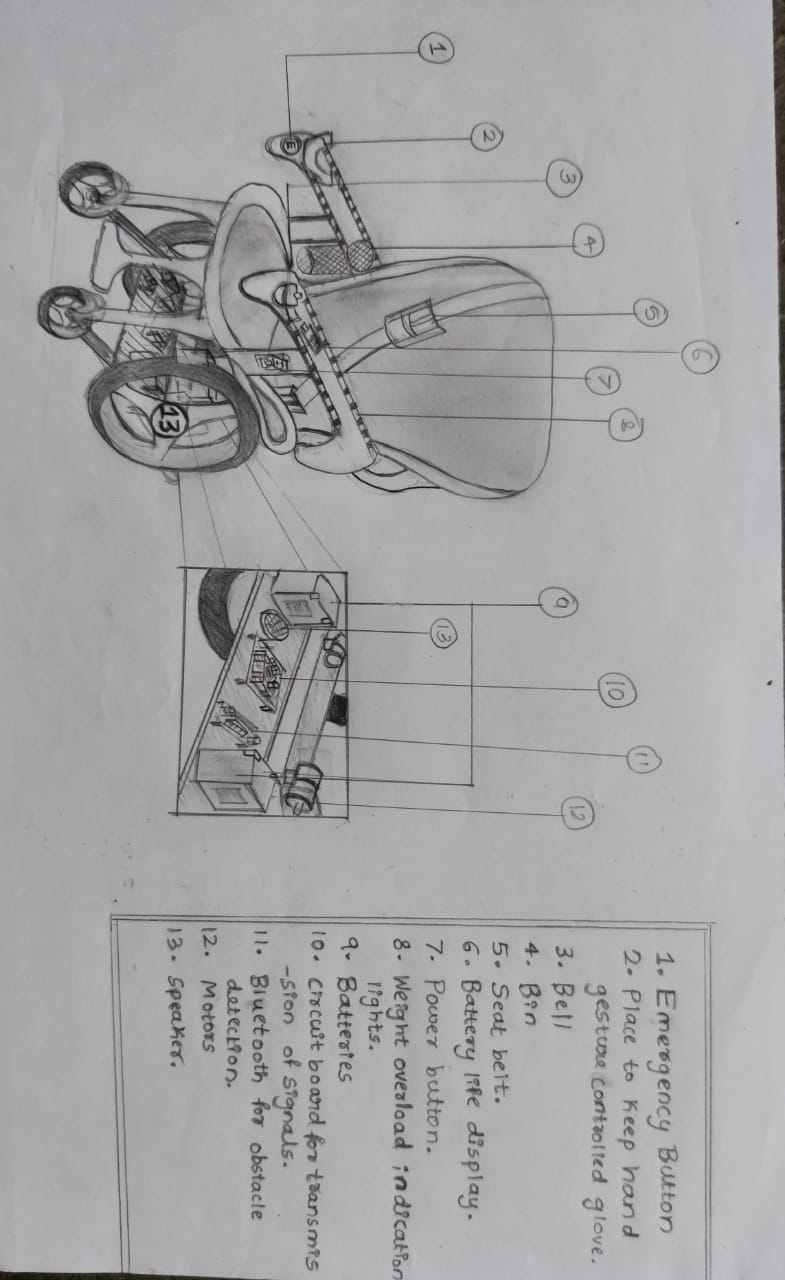 6
5
8
7
11
10
4
3
12
9
2
13
1
E
13
1. Emergency Button
2. Place to keep hand
gesture controlled glove.
3. Bell
4. Bin
5. Seat belt.
6. Battery life display.
7. Power button.
8. Weight overload indication
lights.
9. Batteries
10. circuit board for transmis
-sion of signals.
11. Bluetooth for obstacle
detection.
12. Motors
13. speaker.